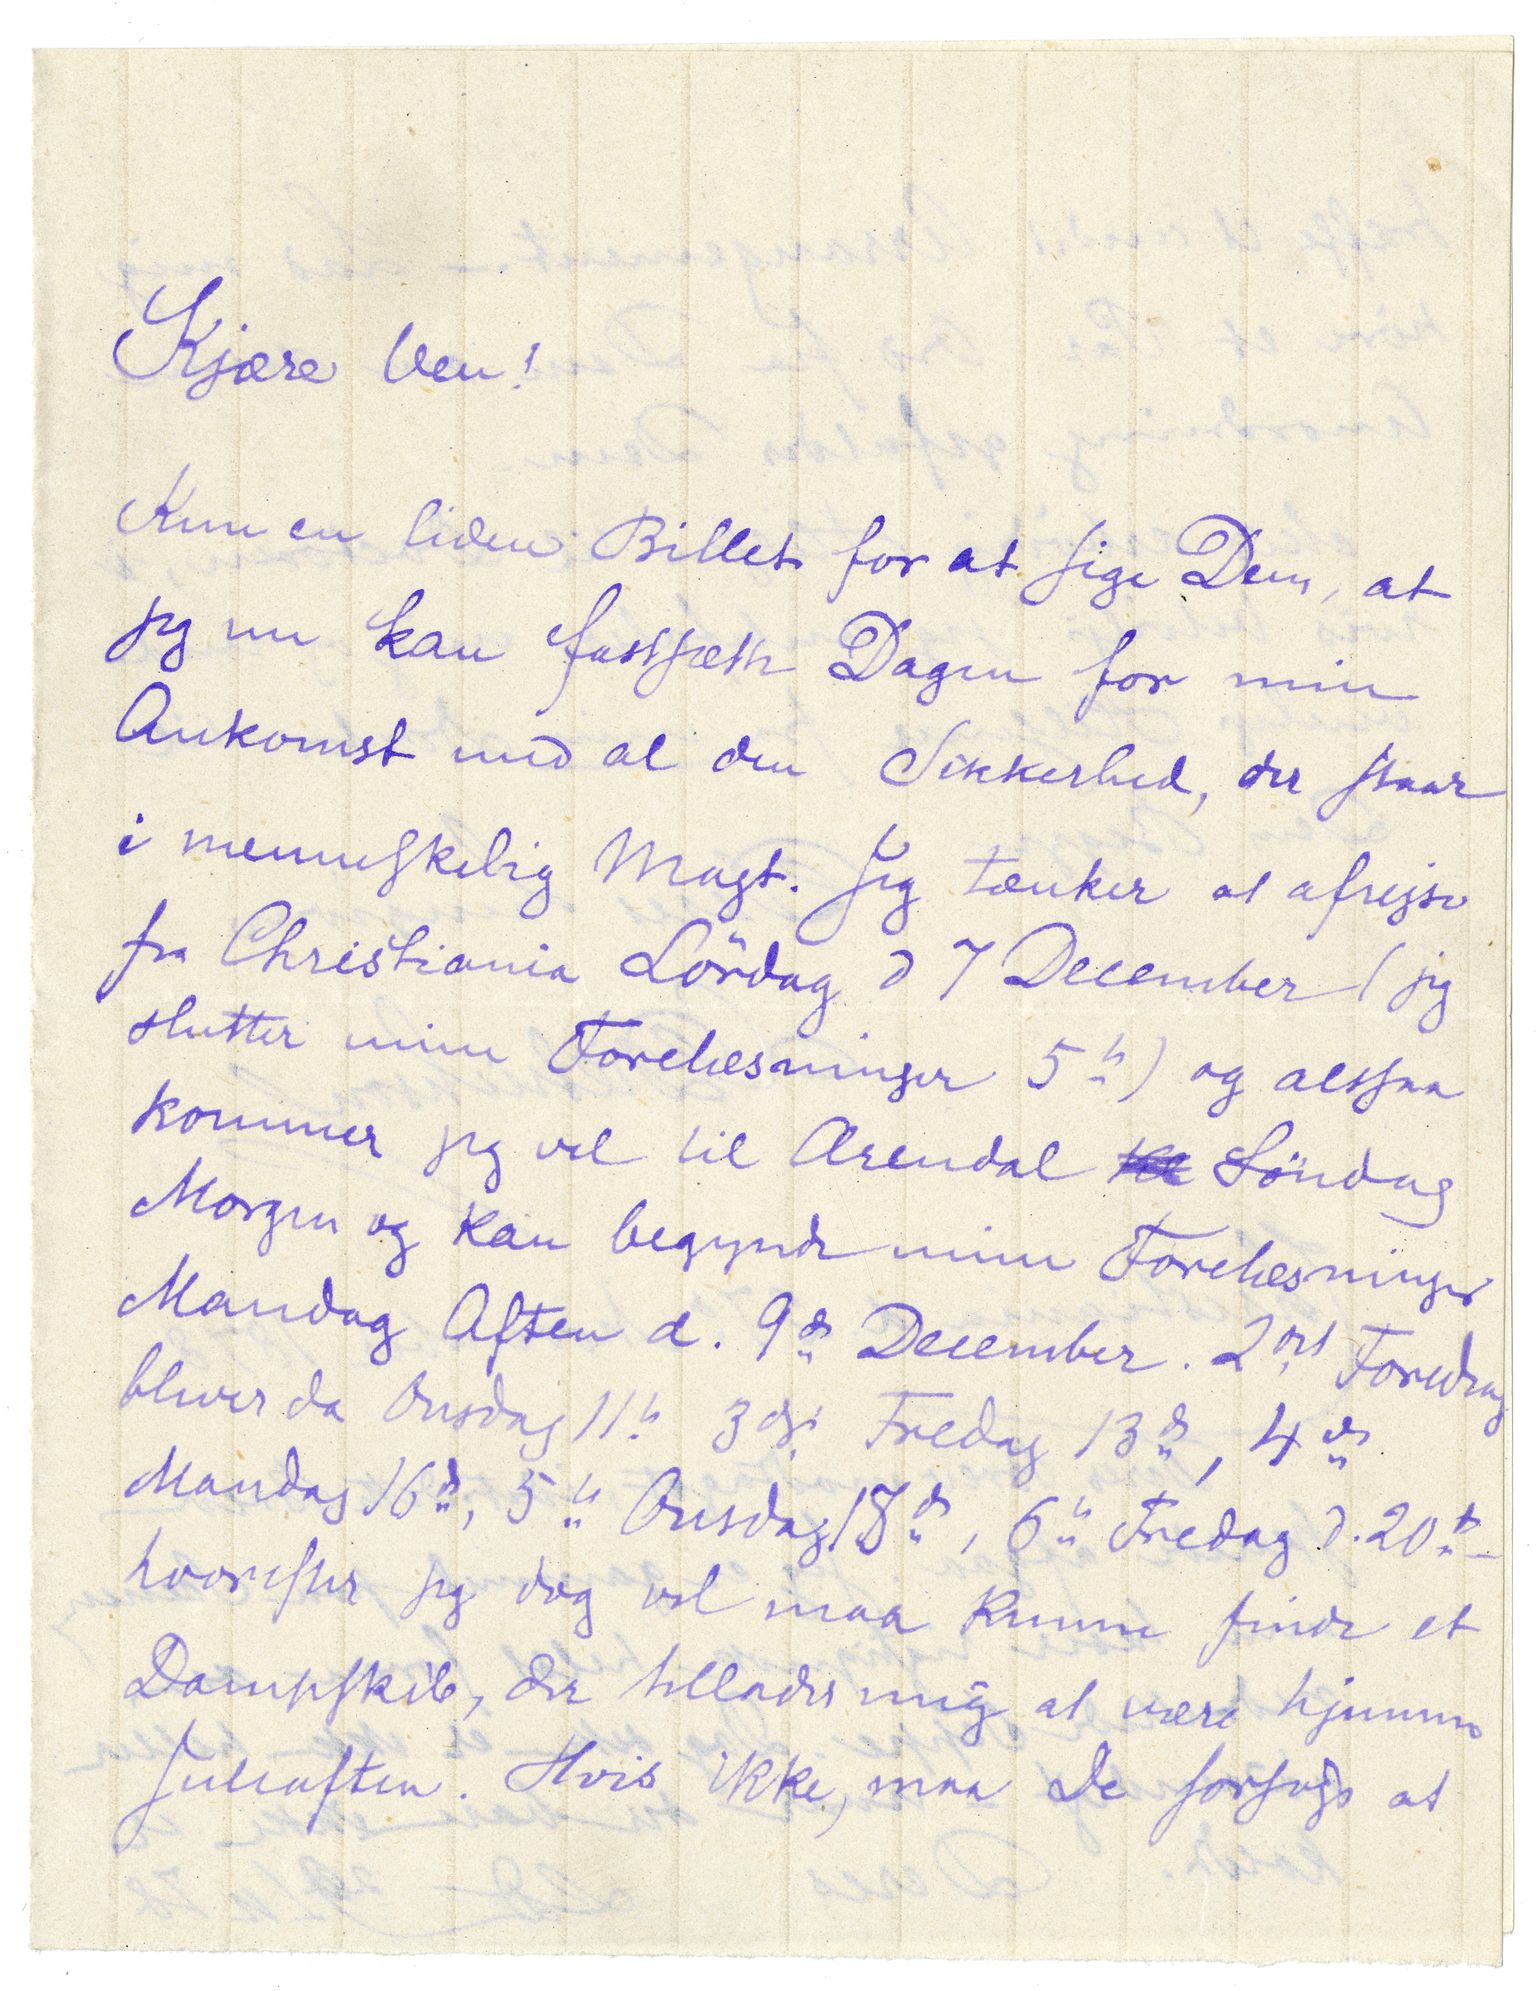 Kjære Ven!
Kun en liden Billet for at sige Dem, at
jeg nu kan fastsætte Dagen for min
Ankomst med al den Sikkerhed, der staar
i menneskelig Magt. Jeg tænker at afrejse
fra Christiania Lördag d 7 December (jeg
slutter mine Forelæsninger 5te) og altsaa
kommer jeg vel til Arendal Söndag
Morgen og kan begynde mine Forelæsninger
Mandag Aften d. 9de December. 2det Foredrag
bliver da Onsdag 11te 3die Fredag 13de, 4de
Mandag 16de, 5te Onsdag 18de, 6te Fredag d. 20de –
hvorefter jeg dog vel maa kunne finde et
Dampskib, der tillader mig at være hjemme
Juleaften. Hvis ikke, maa De forsøge at